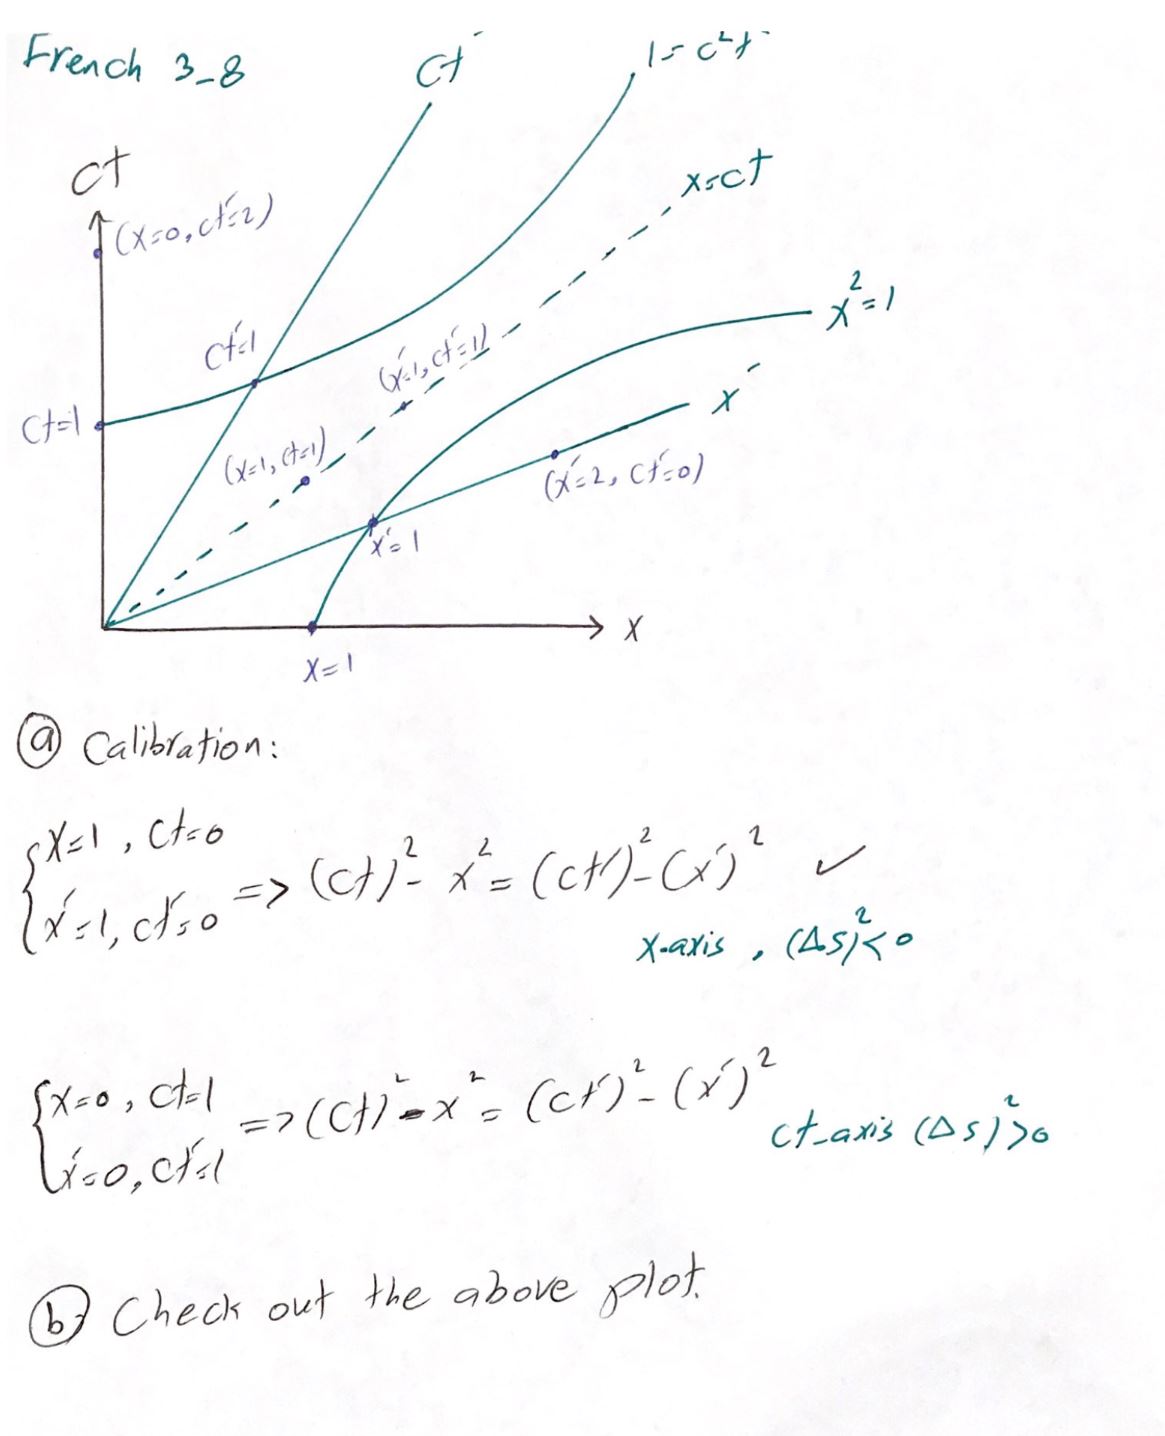 French 3-8
ct'
1 = c²t'
ct
x=ct
(x=0, ct'=2)
x²=1
ct'=1
(x'=1, ct'=1)
x'
ct=1
(x=1, ct=1)
(x'=2, ct'=0)
x'=1
x
x=1
ⓐ Calibration:
{x=1, ct=0
{x'=1, ct'=0 => (ct)² - x² = (ct')² - (x')² ✓
x-axis, (Δs)²<0
{x=0, ct=1
{x'=0, ct'=1 => (ct)² - x² = (ct')² - (x')²
ct-axis (Δs)²>0
ⓑ Check out the above plot.